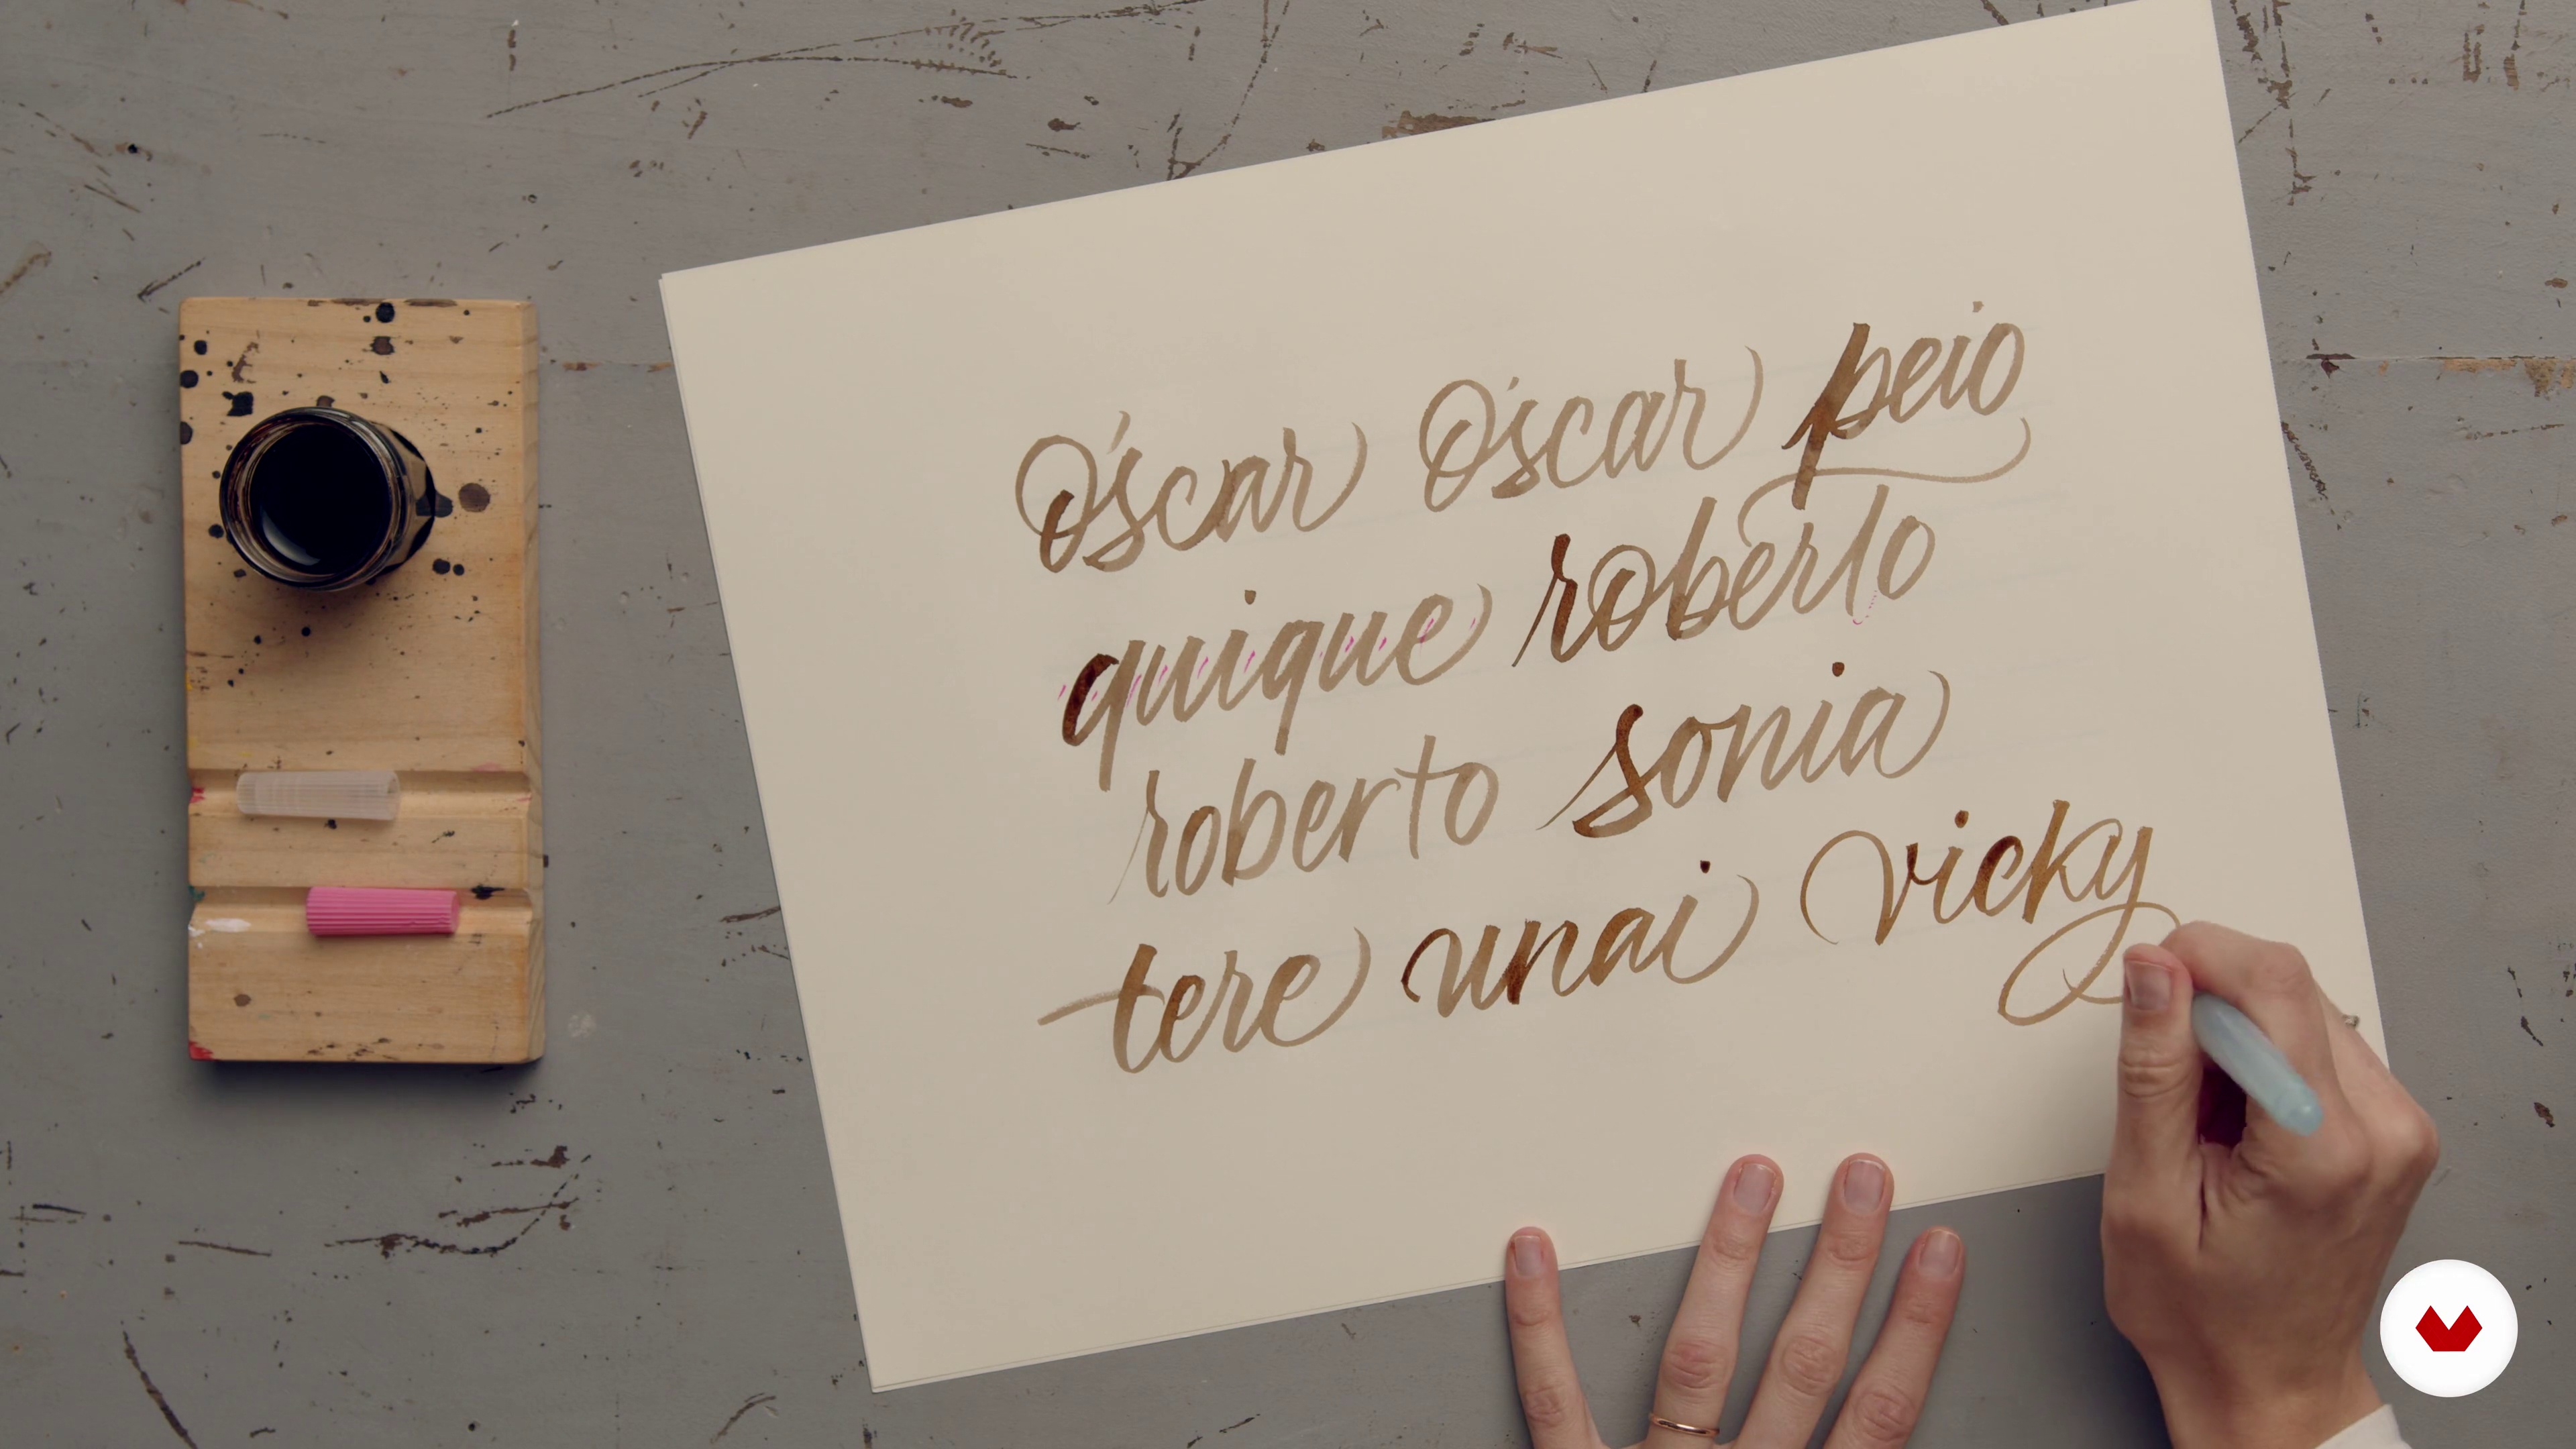 Óscar Óscar peio
quique roberto
roberto sonia
tere unai vicky